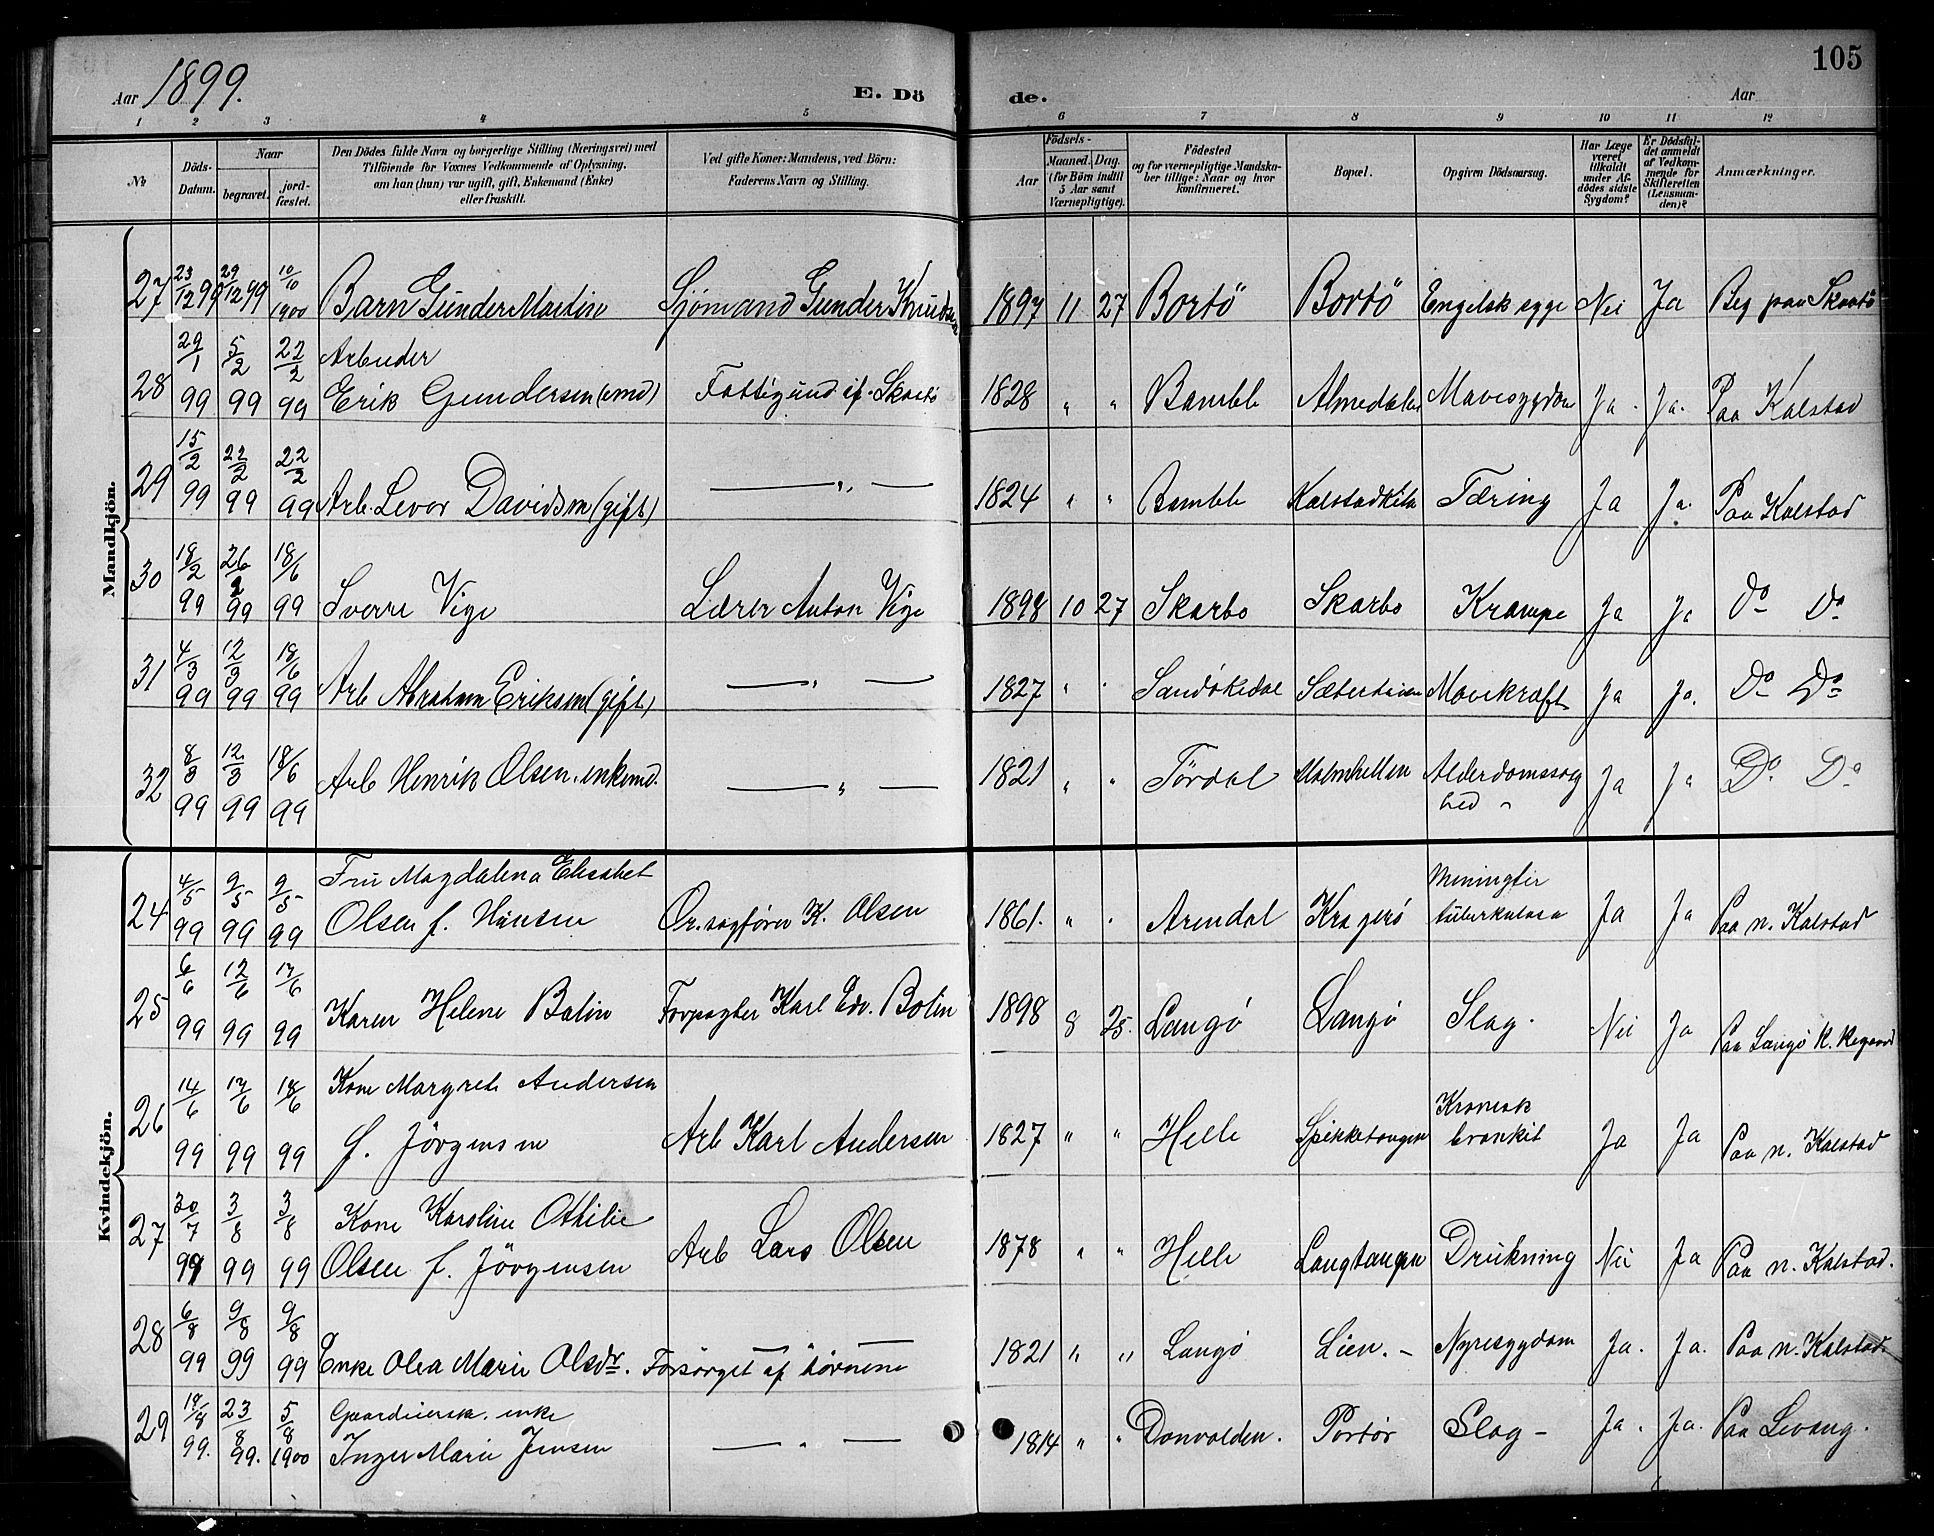 105
Aar 1899.
E. Dö
de.
Aar
1 2 3 4 5 6 7 8 9 10 11 12
No
Döds-Datum.
Naar
begravet.
jord-fæstet.
Den Dödes fulde Navn og borgerlige Stilling (Næringsvei) med
Tilföiende for Voxnes Vedkommende af Oplysning,
om han (hun) var ugift, gift, Enkemand (Enke)
eller fraskilt.
Ved gifte Koner: Mandens, ved Börn:
Faderens Navn og Stilling.
Födsels-
Aar
Maaned. Dag.
(for Börn indtil
5 Aar samt
Værnepligtige).
Födested
og for værnepligtige Mandska-
ber tillige: Naar og hvor
konfirmeret.
Bopæl.
Opgiven Dödsaarsag.
Har Læge
været
tilkaldt
under Af-
dödes sidste
Sygdom?
Er Dödsfal-
det anmeldt
af Vedkom-
mende for
Skifteretten
(Lensman-
den)?
Anmærkninger.
Mandkjön.
27 23/12 99 29/12 99 10/10 1900 Barn Gunder Martin Sjömand Gunder Knudsen 1897 11 27 Bortö Bortö Engelsk syge Nei Ja Beg paa Skaatö
28 29/1 99 5/2 99 22/2 99 Arbeider
Erik Gundersen (emd) Fattigund. af Skaatö 1828 " " Bamble Almedalen Mavesygdom Ja. Ja. Paa Kalstad
29 15/2 99 22/2 99 22/2 99 Arb. Levor Davidsen (gift) — " — 1824 " " Bamble Kalstadkilen Tæring Ja Ja. Paa Kalstad
30 18/2 99 26/2 99 18/6 99 Sverre Vige Lærer Anton Vige 1898 10 27 Skarbo Skarbo Krampe Ja Ja Do Do
31 4/3 99 12/3 99 18/6 99 Arb Abraham Eriksen (gift) — " — 1827 " " Sandökedal Mavekræft Ja Ja. Do Do
32 8/3 99 12/3 99 18/6 99 Arb Henrik Olsen. enkemd. — " — 1821 " " Tördal Malmhellen Alderdomssvag
hed Ja Ja Do Do
Kvindekjön.
24 4/5 99 9/5 99 9/5 99 Fru Magdalena Elisabet
Olsen f. Hansen Or. sagförer K. Olsen 1861. " " Arendal Kragerö Miningtis
tuberkulosa Ja Ja Paa n. Kalstad
25 6/6 99 12/6 99 12/6 99 Karen Helene Bolin Forpagter Karl Edv. Bolin 1898 8 25. Langö Langö Slag. Nei Ja Paa Langö
26 14/6 99 17/6 99 18/6 99 Kone Margrete Andersen
f. Jörgensen Arb Karl Andersen 1827 " " Helle Spikketangen Kronisk
bronkit Ja Ja Paa n. Kalstad
27 30/7 99 3/8 99 3/8 99 Kone Karoline Othilie
Olsen f. Jörgensen Arb Lars Olsen 1878 " " Helle Langtangen Drukning Nei Ja Paa n. Kalstad.
28 6/8 99 9/8 99 9/8 99 Enke Olea Marie Olsdr. Forsörget af börnene 1821 " " Langö Lien. – Nyresygdom Ja. Ja. Paa n. Kalstad
29 18/8 99. 23/8 99. 5/8 1900 Gaardeiersk. enke
Inger Marie Jensen — " — 1814 " " Donvolden. Portör Slag – Ja. Ja. Paa Levang.